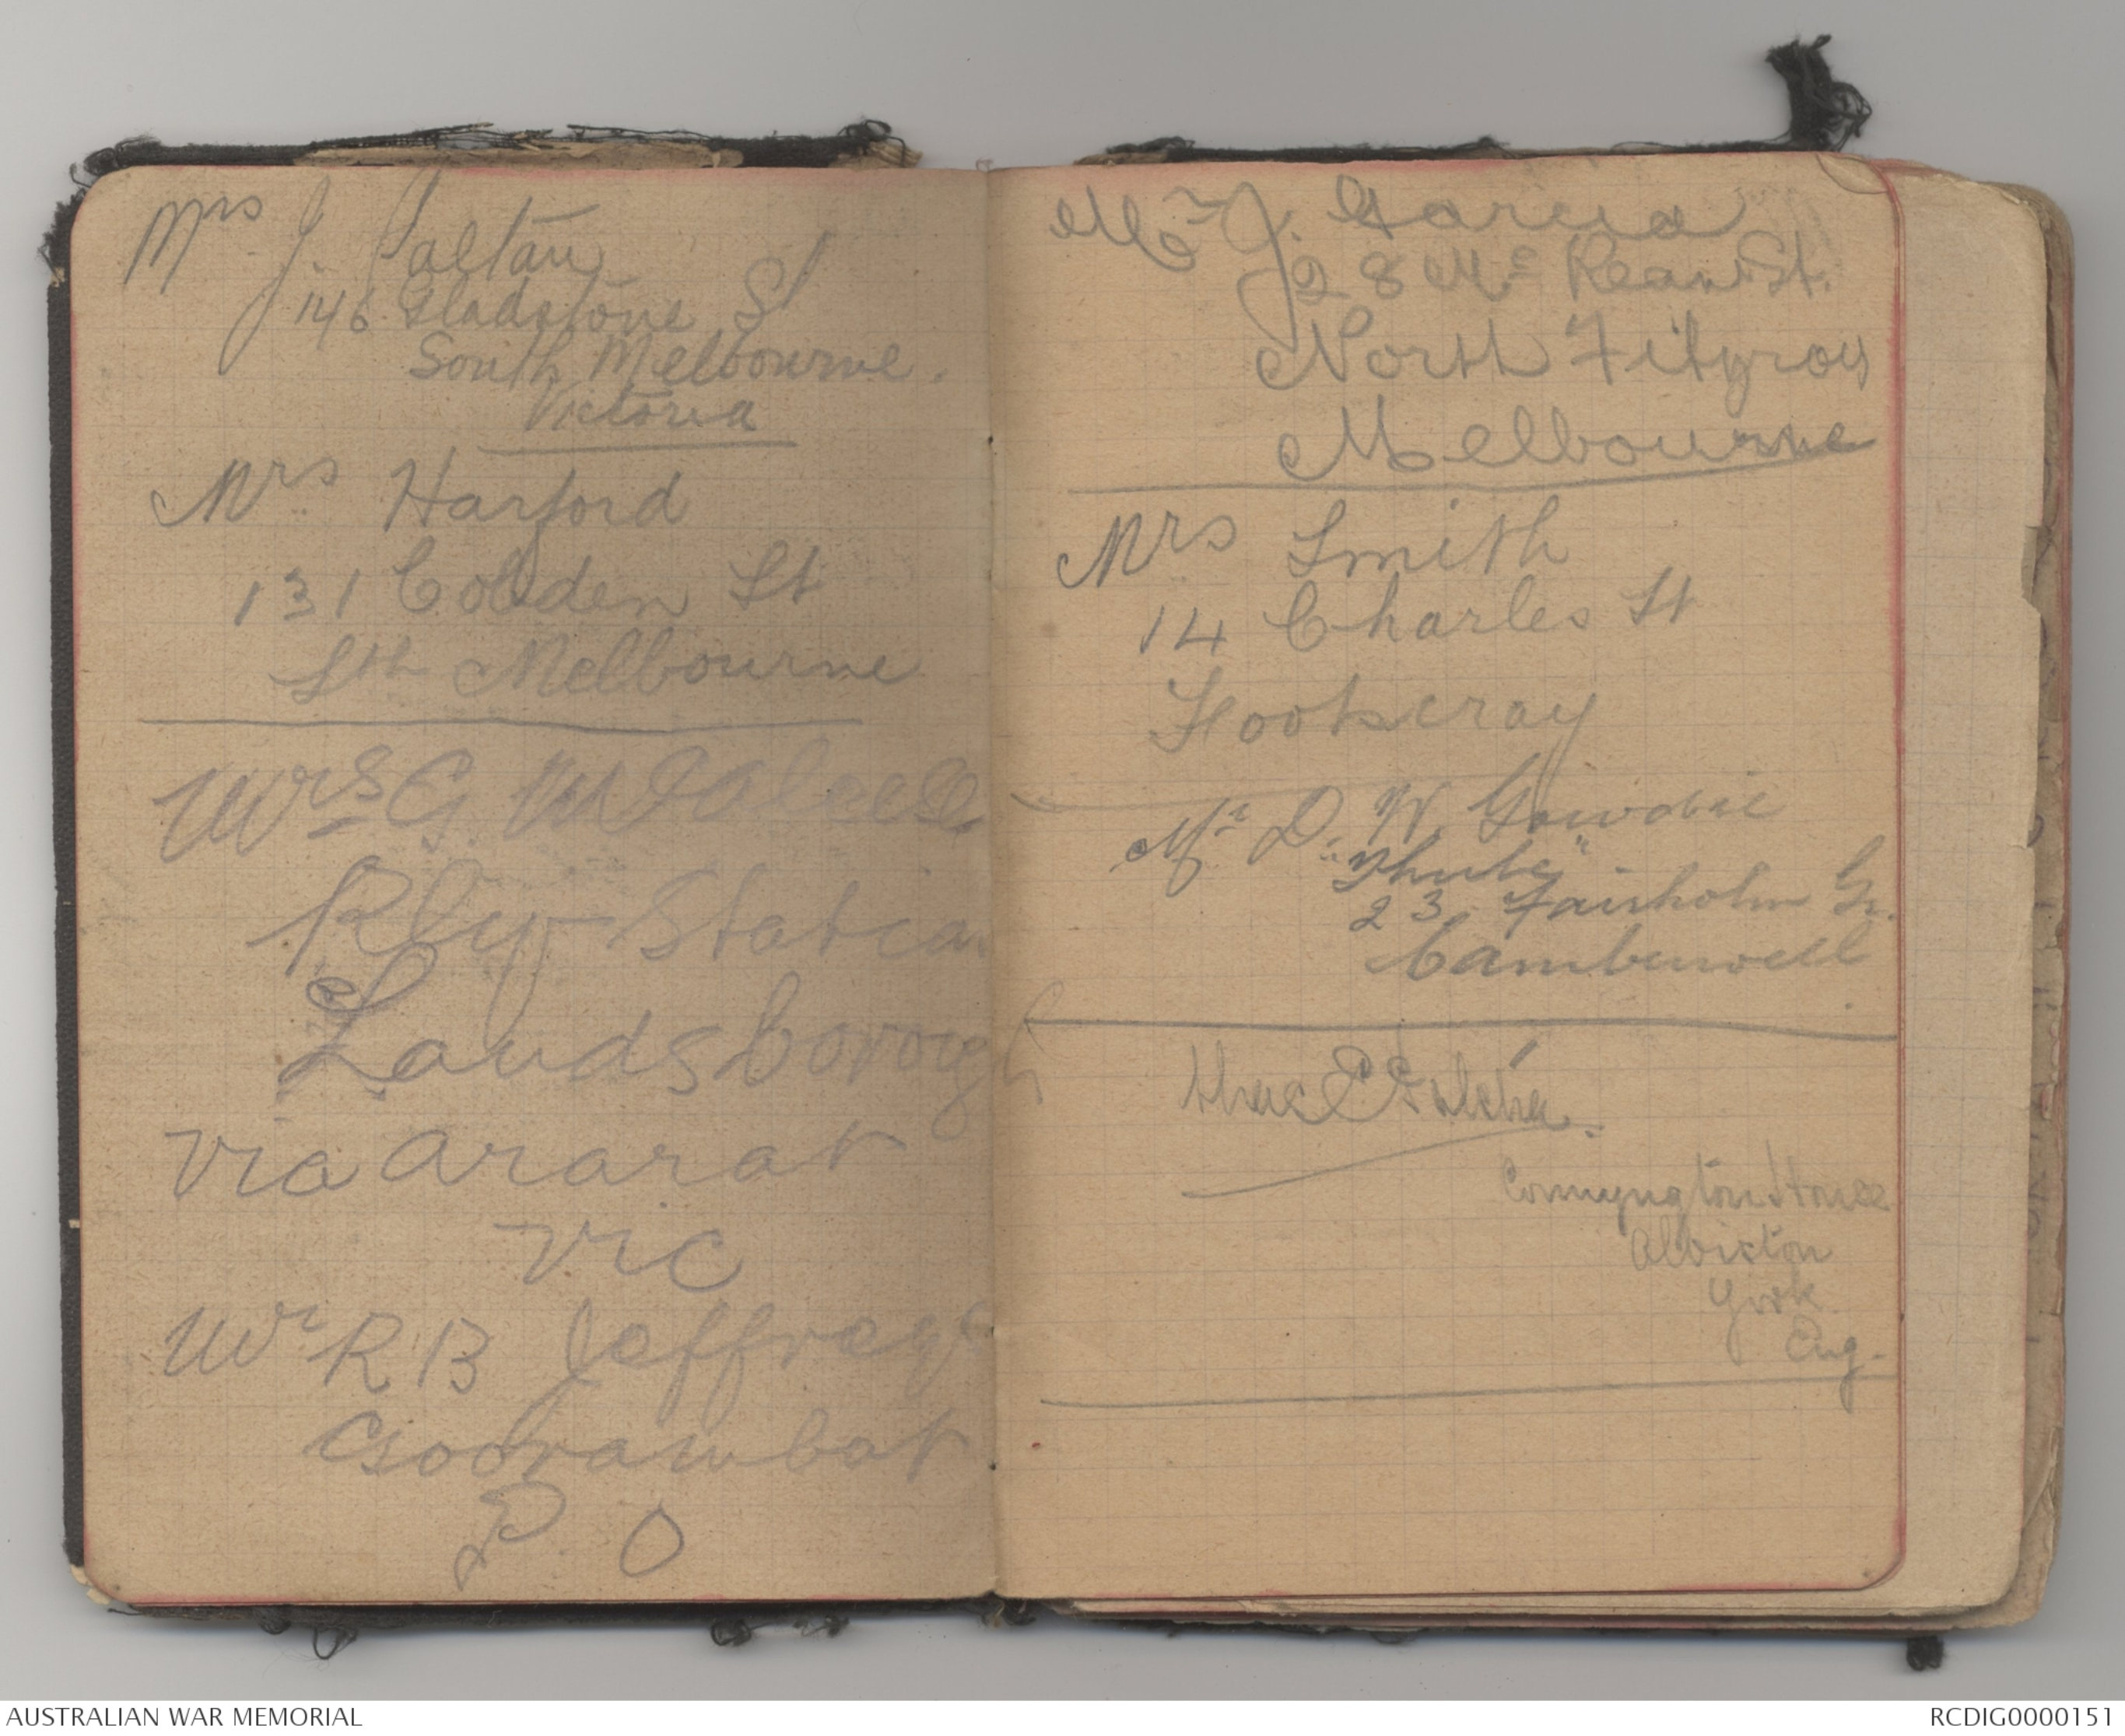 Mrs J.
146 Gladstone St
South Melbourne.
Victoria
Mrs Harford
131 Cobden St
Sth Melbourne
Mrs G.
Rly Station
Landsborough
Via Ararat
Vic
Mr R B Jeffrey
Goorambat
P O
Mr J. Garcia
28 Mc Kean St.
North Fitzroy
Melbourne
Mrs Smith
14 Charles St
Footscray
Mr D. W. Gowdie
23 Fairholm Gr.
Camberwell
York
Eng.
AUSTRALIAN WAR MEMORIAL
RCDIG0000151